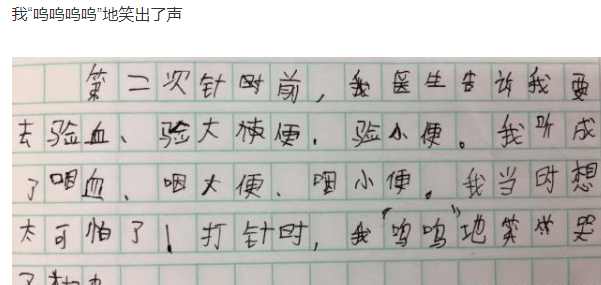 我“呜呜呜呜”地笑出了声
第二次针时前，我医生告诉我要
去验血、验大便．验小便。我听成
了咽血、咽大便、咽小便。我当时想
太可怕了！打针时，我“呜呜”地笑哭
了